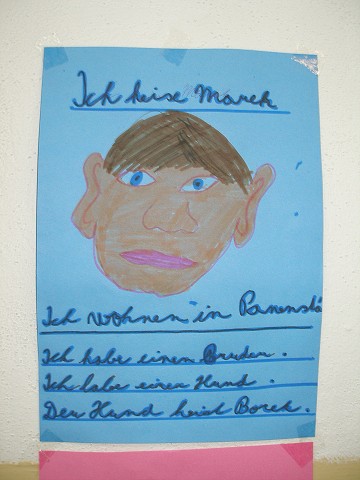 Ich heise Marek
Ich wohnen in Panenská
Ich habe einen Bruder.
Ich habe einen Hund.
Der Hund heist Borek.